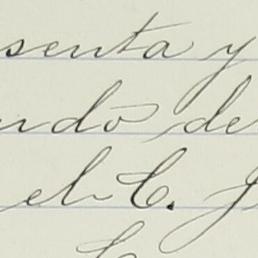 senta y
ndo de
el C. J
C